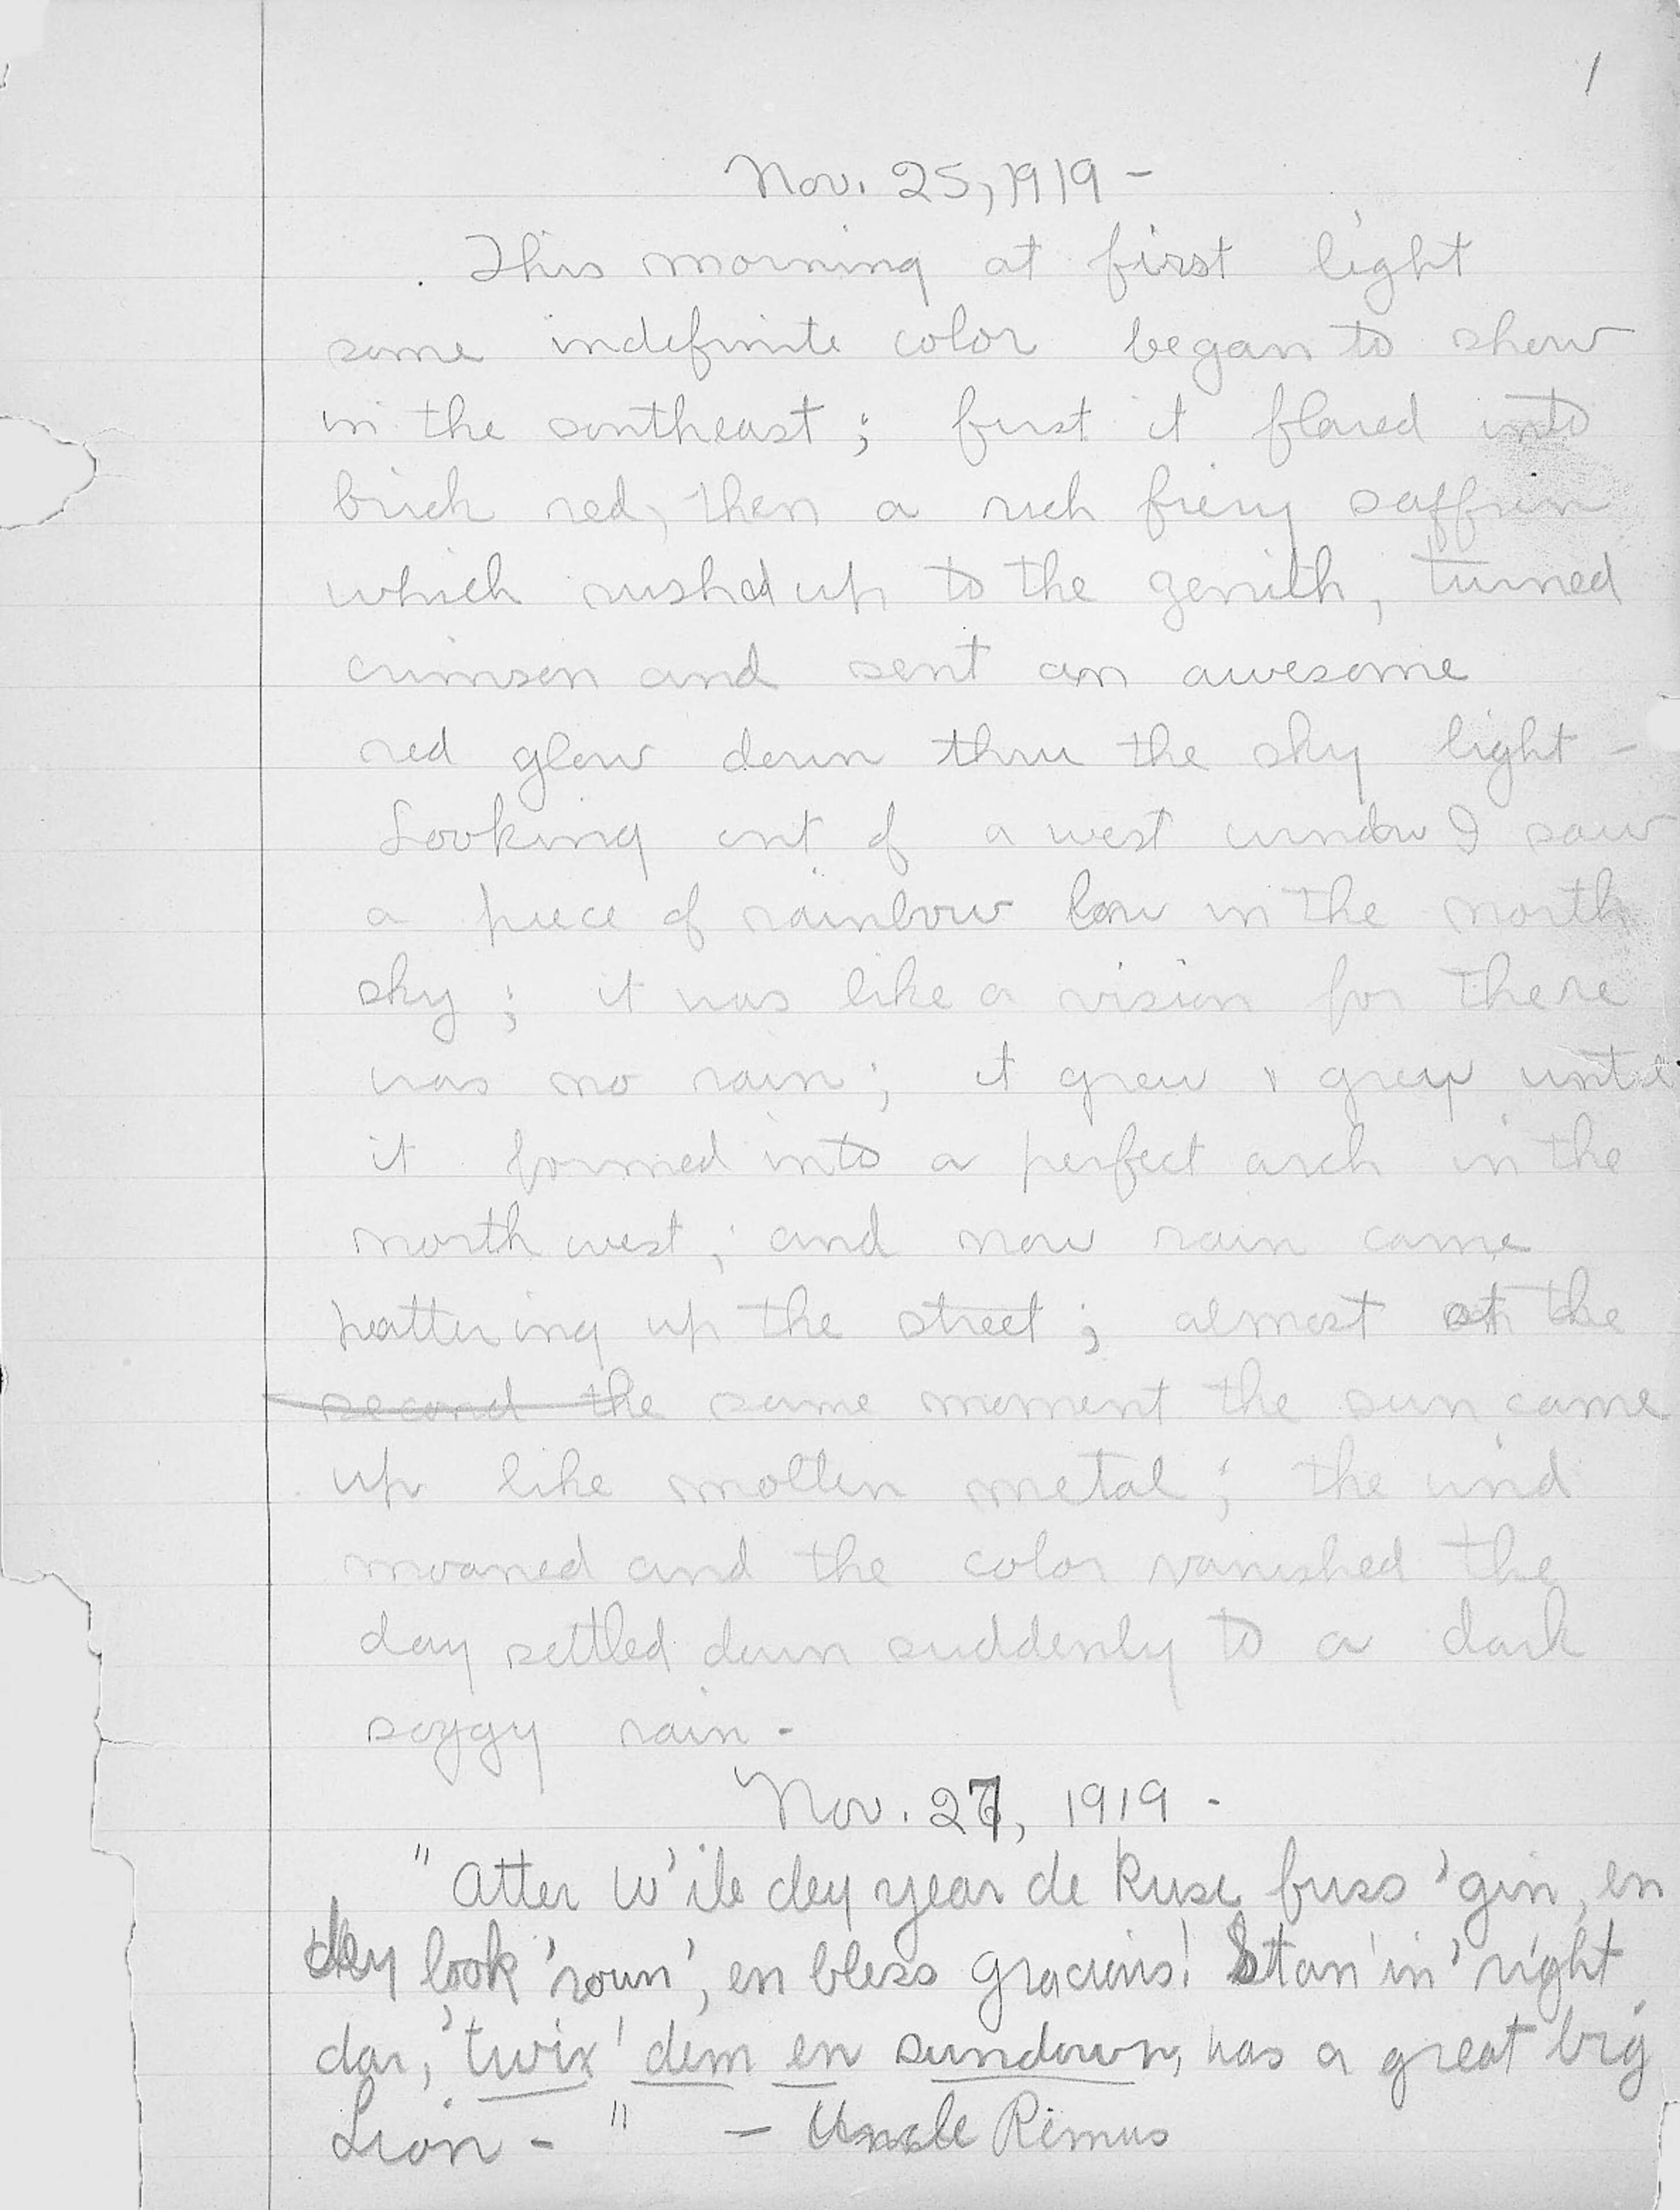 1
Nov. 25, 1919 -
This morning at first light
some indefinite color began to show
in the southeast; first it flared into
brick red, then a rich fiery saffron
which rushed up to the zenith, turned
crimson and sent an awesome
red glow down thru the sky light -
Looking out of a west window I saw
a piece of rainbow low in the north
sky; it was like a vision for there
was no rain; it grew & grew until
it formed into a perfect arch in the
north west; and now rain came
pattering up the street; almost at the
second the same moment the sun came
up like molten metal; the wind
moaned and the color vanished the
day settled down suddenly to a dark
soggy rain -
Nov. 27, 1919 -
"Atter w'ile dey year de fuss 'gin, en
dey look 'roun', en bless gracious! Stan'in' right
dar, 'twix' dem en sundown, was a great big
Lion - " - Uncle Remus